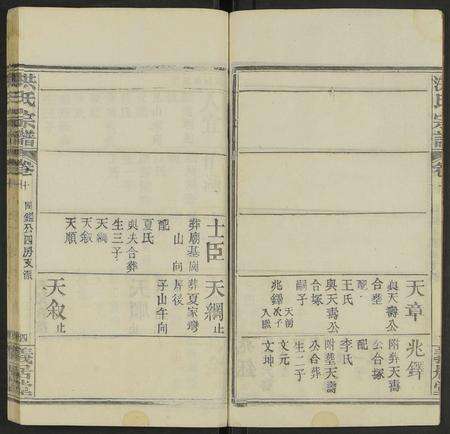 洪氏宗譜
卷
天章
與天壽公
合塋
兆鐸
附葬天壽
公合塚
配
王氏
與天壽公
合塚
嗣子
兆鐸
天叙
次子
入繼
配
李氏
附塋天壽
公合葬
生二子
文元
文坤
士臣
葬廟基園
山向
配
夏氏
與夫合葬
生三子
天綱
天叙
天順
天綱止
葬夏家灣
屋後
子山午向
天叙止
洪氏宗譜
卷十
四房支派
四